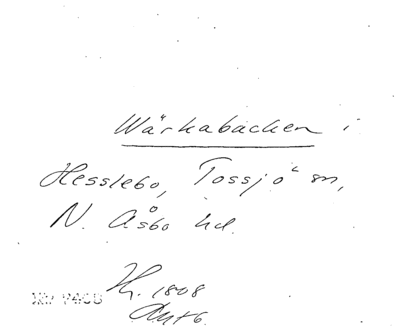 Wärkabacken i
Hesslebo, Tossjö sn,
N. Åsbo hd.
1808